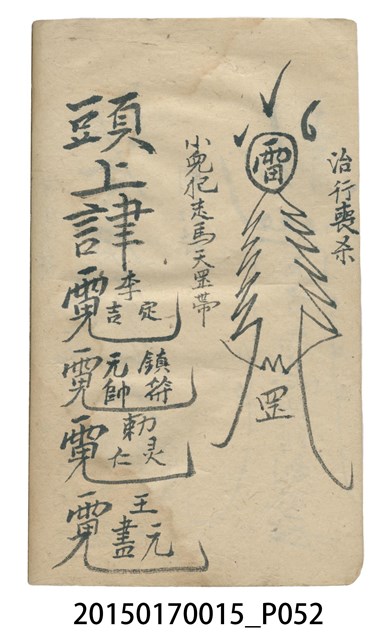 治行喪杀
雷
罡
小兒犯走馬天罡帶
頭上諱
李定
吉
鎮符
元帥
勅灵
仁
王元
盡
20150170015_P052